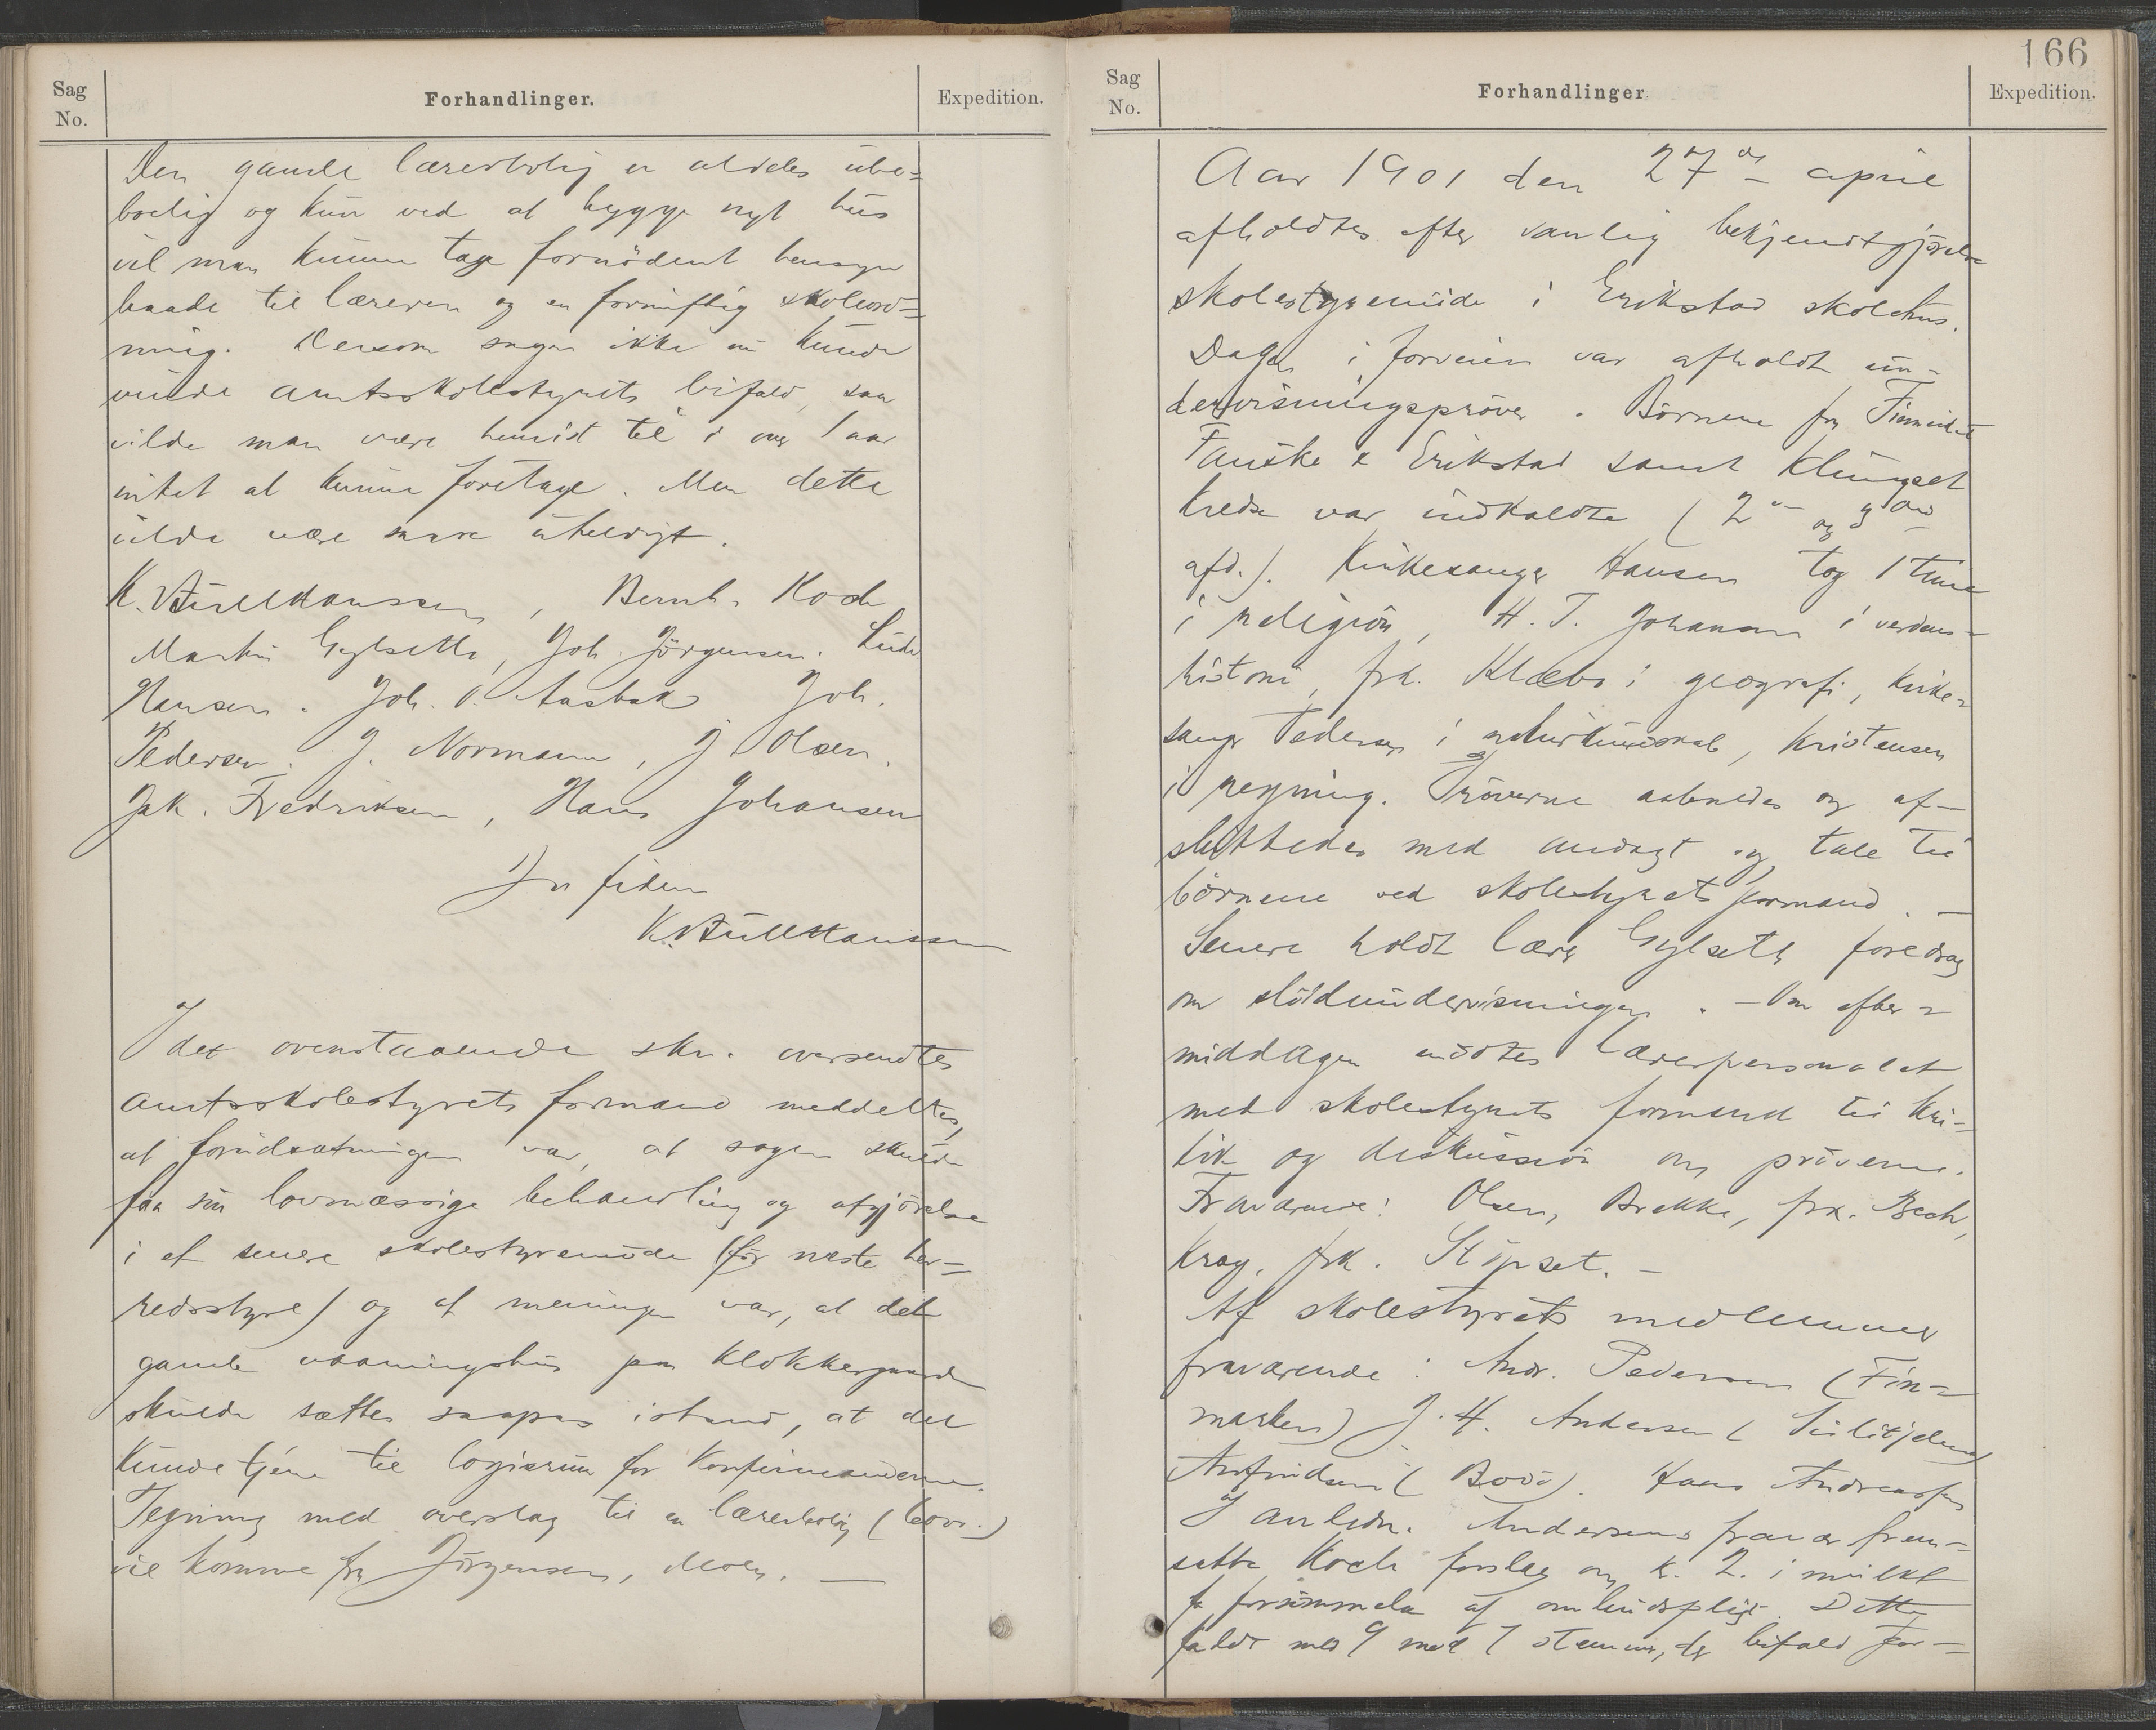 Sag
No.
Forhandlinger.
Expedition.
Den gamle lærerbolig er aldeles ube=
boelig og kun ved at bygge nyt hus
vil man kunne tage fornødent hensyn
baade til læreren og en fornuftig skoleord=
ning. Dersom sagen ikke nu kunde
vinde amtsskolestyrets bifald, saa
vilde man være henvist til i over 1 aar
intet at kunne foretage. Men dette
vilde være uheldigt.
K. Bull Hanssen, Bernh. Koch
Martin Gylseth, Joh. Jørgensen. Ludv.
Hansen. Joh. Aasbak Joh.
Pedersen. J. Normann, J. Olsen.
Jak. Fredriksen, Hans Johansen
In fidem
K. Bull Hanssen
Idet ovenstaaende skr. oversendtes
amtsskolestyrets formand meddeltes,
at forudsætningen var, at sagen skulde
faa sin lovmæssige behandling og afgjørelse
i et senere skolestyremøde (før næste her=
redsstyre) og at meningen var, at det
gamle vaaningshus paa Klokkergaarden
skulde sættes saapas istand, at det
kunde tjene til logisrum for konfirmanderne.
Tegning med overslag til en lærerbolig
vil komme fra Jørgensen, Moen. —
166
Sag
No.
Forhandlinger.
Expedition.
Aar 1901 den 27de april
afholdtes efter vanlig bekjendtgjørelse
skolestyremøde i Erikstad skolehus.
Dagen i forveien var afholdt un-
dervisningsprøver. Børnene fra Finneidet
Fauske & Erikstad samt Klungset
kredse var indkaldte (2den og 3die
afd.). Kirkesanger Hansen tog 1 time
i religion, H. T. Johansen i verdens-
historie, frk. Klæbo i geografi, kirke=
sanger Pedersen i naturkundskab, Kristensen
i regning. Prøverne aabnedes og af-
sluttedes med andagt og tale til
børnene ved skolestyrets formand. —
Senere holdt lærer Gylseth foredrag
om sløidundervisningen. — Om efter=
middagen mødtes lærerpersonalet
med skolestyrets formand til kri=
tik og diskussion om prøverne.
Fraværende: Olsen, Brekke, frk. Bech,
Krag, frk. Stöpset. —
Af skolestyrets medlemmer
fraværende: Andr. Pedersen (Fin=
marken) J. H. Andersen (Sulitjelma)
Arntsen (Bodø). Hans Andreassen
I anledn. Andersens fravær frem=
satte Koch forslag om kr. 2. i mulkt
for forsømmelse af ombudspligt. Dette
faldt med 9 mod 1 stemme, der bifald for=